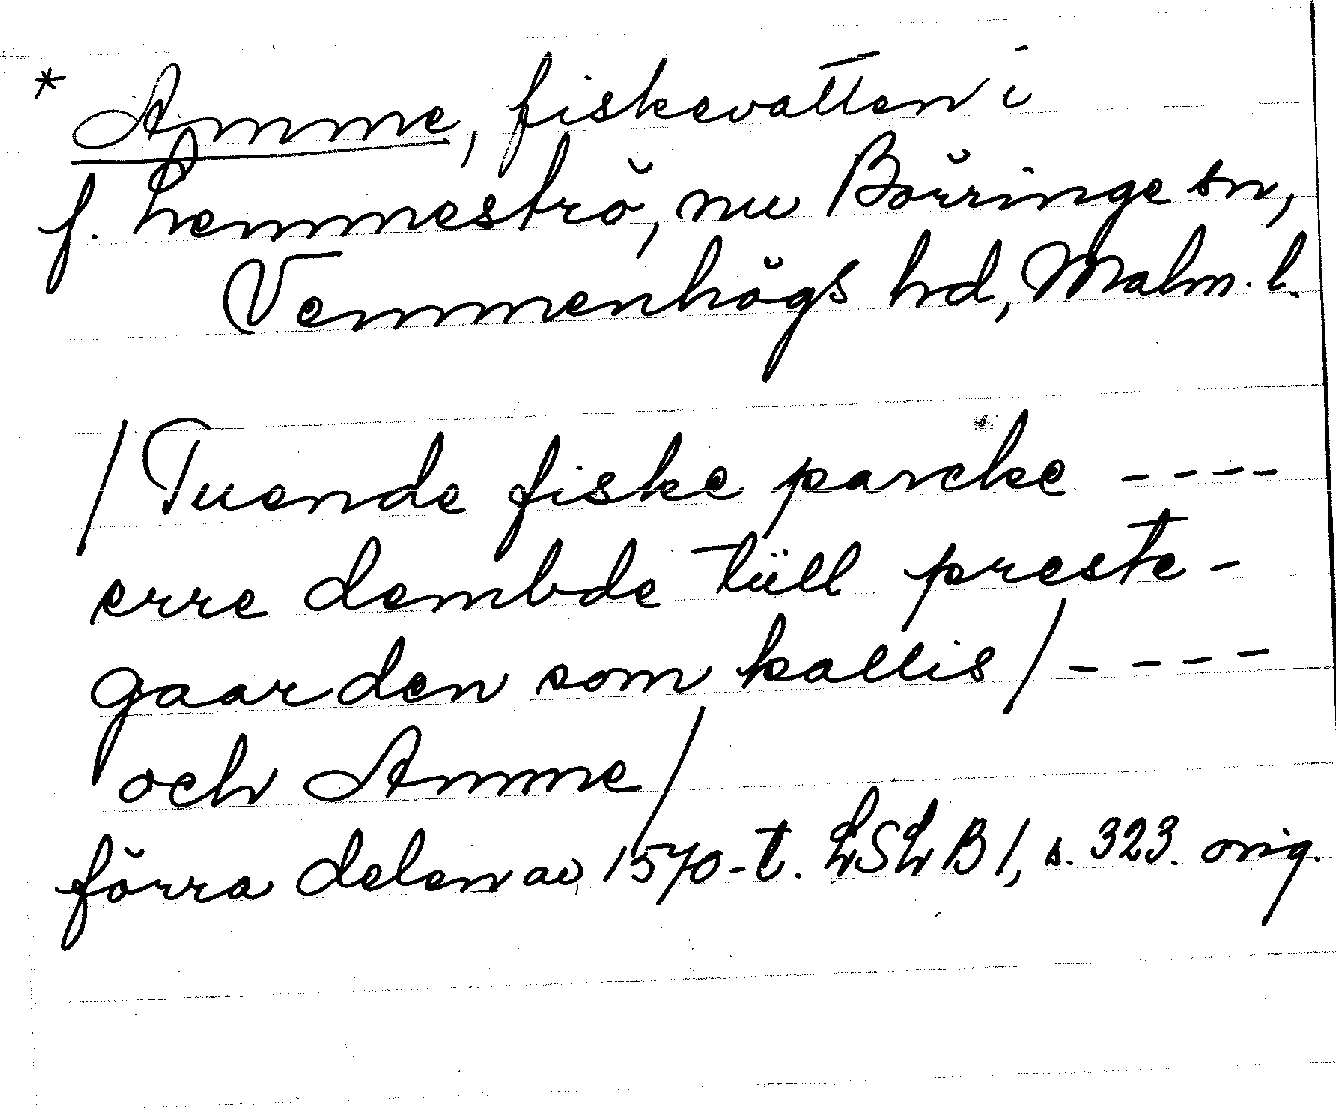 * Amme, fiskevatten i
f. Lemmeströ, nu Börringe sn,
Vemmenhögs hd, Malm. l.
/Tuende fiske parcke ----
erre dembde tüll preste-
gaarden som kallis/----
och Amme/
förra delen av 1570-t. LSLB 1, s. 323. orig.